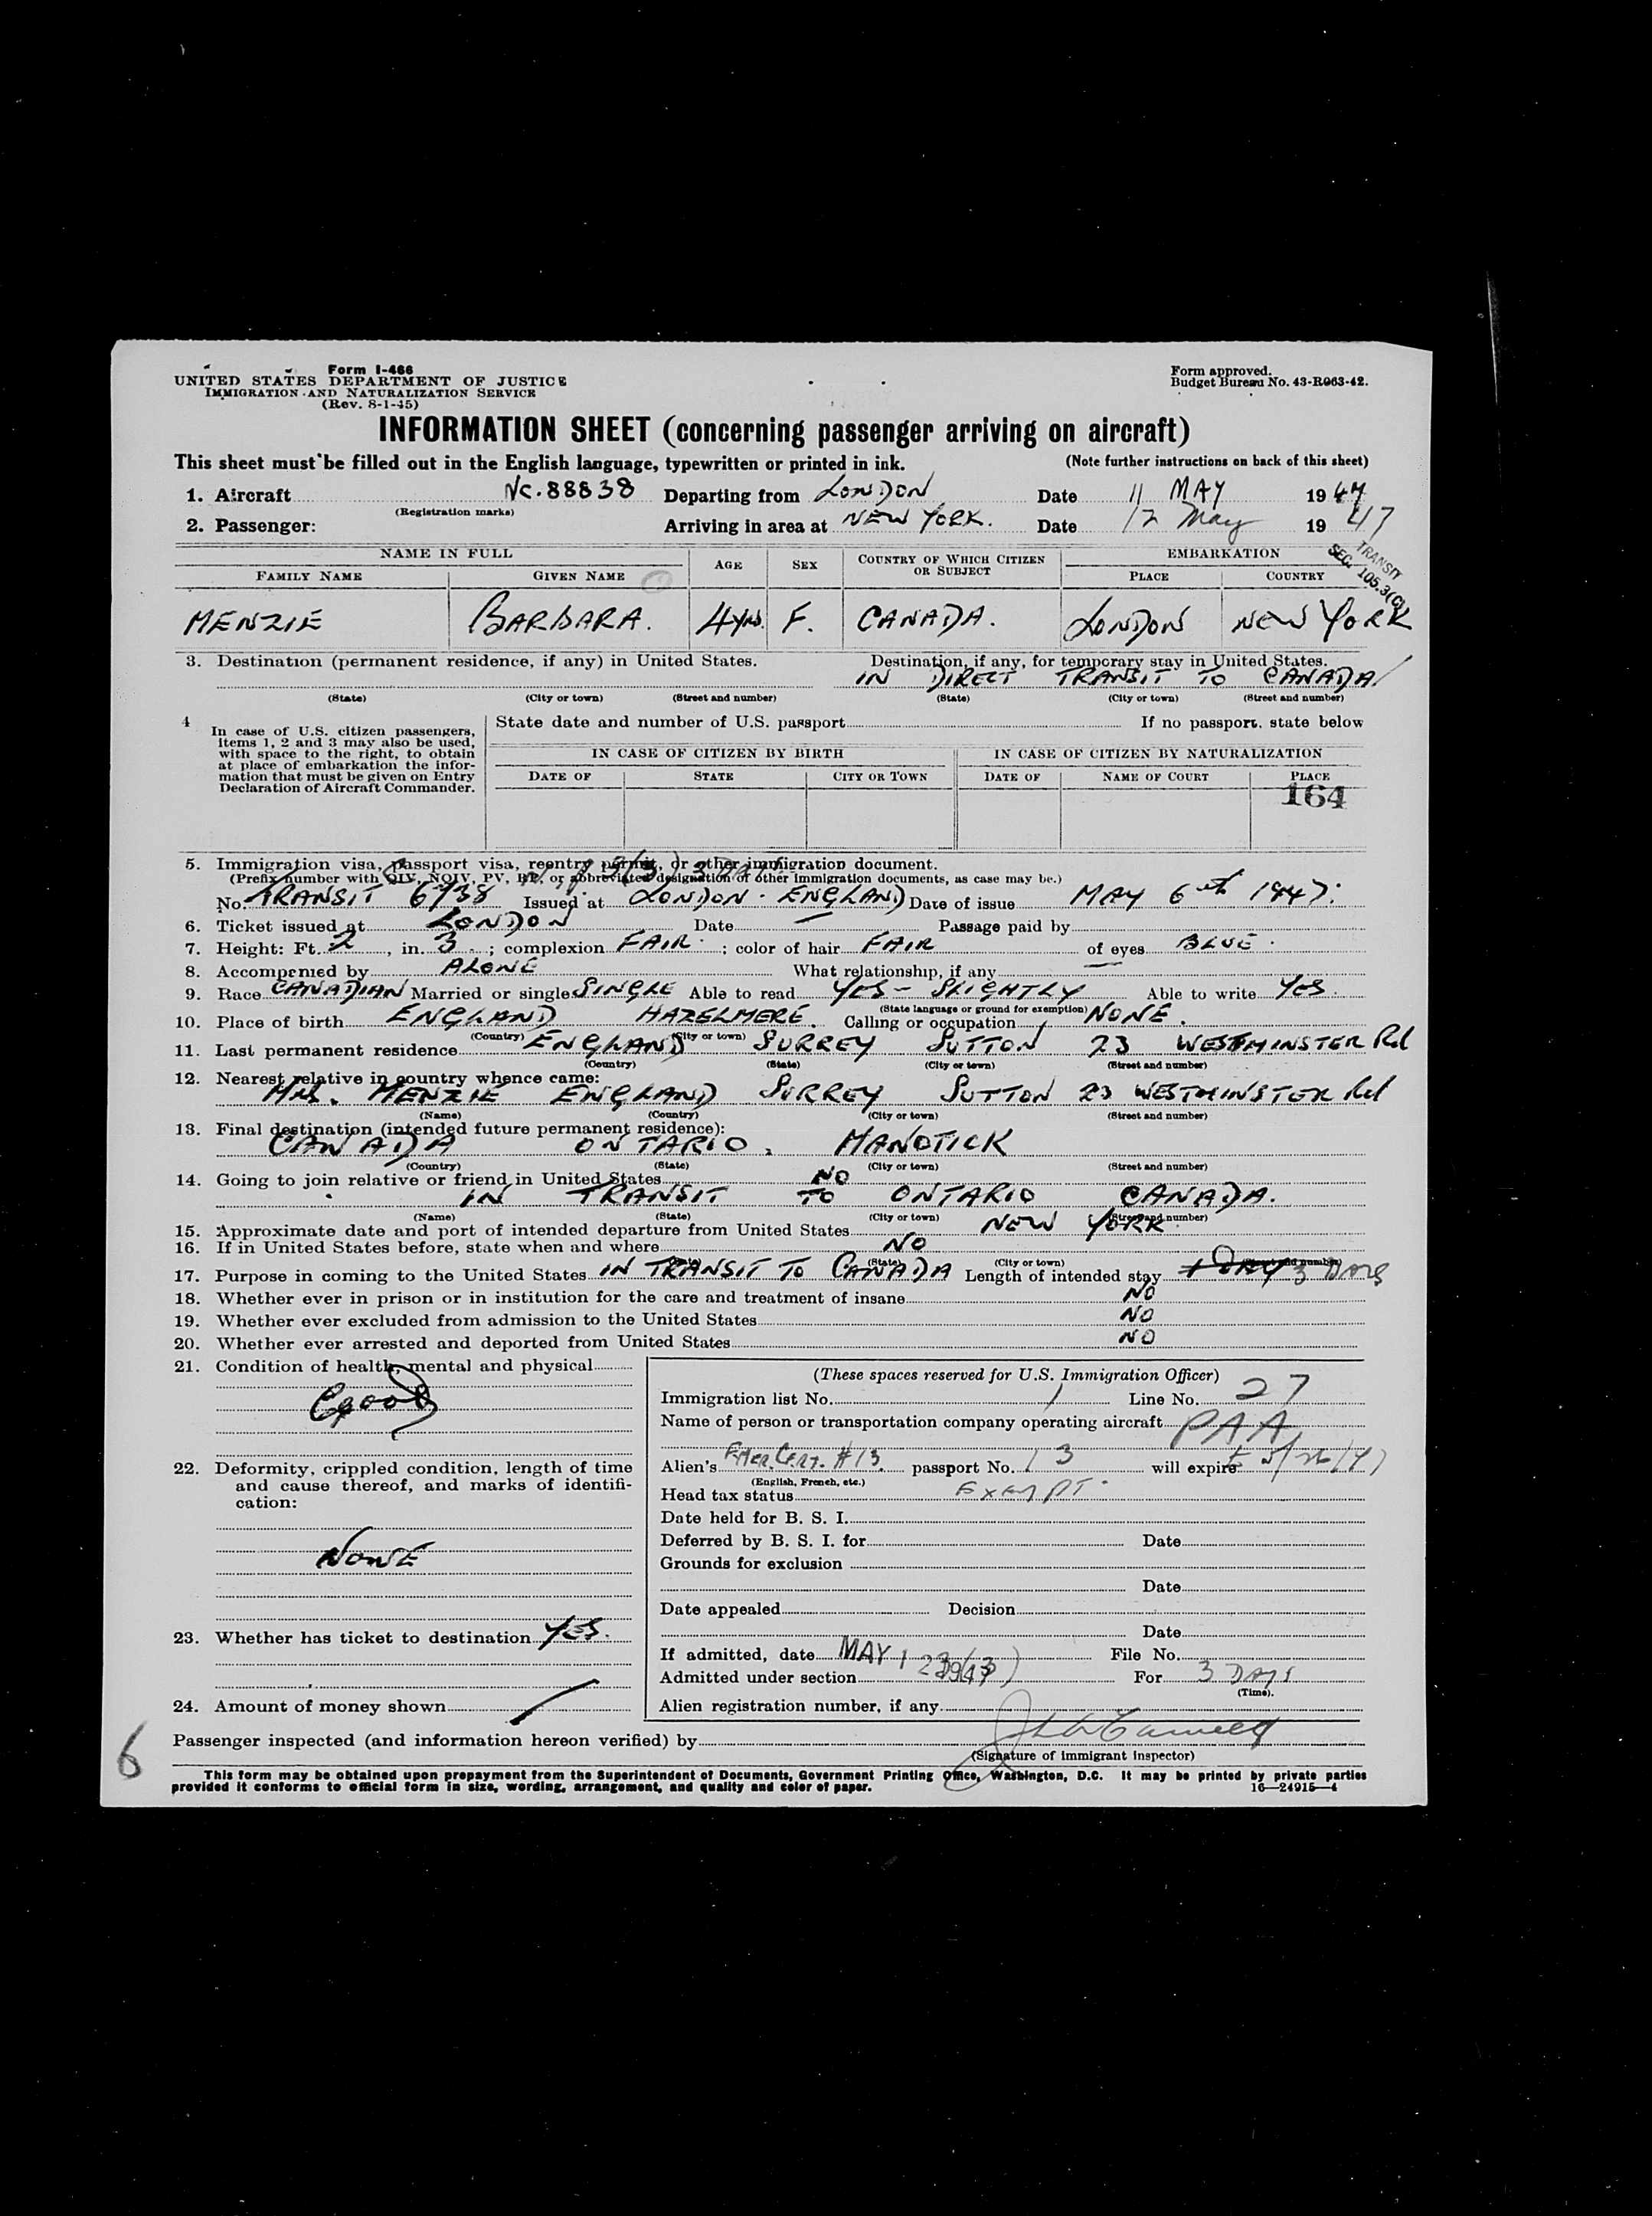 Form I-466
UNITED STATES DEPARTMENT OF JUSTICE
IMMIGRATION AND NATURALIZATION SERVICE
(Rev. 8-1-45)
Form approved.
Budget Bureau No. 43-R063-42.
INFORMATION SHEET (concerning passenger arriving on aircraft)
This sheet must be filled out in the English language, typewritten or printed in ink. (Note further instructions on back of this sheet)
1. Aircraft NC.88838 Departing from LONDON Date 11 MAY 1947
(Registration marks)
2. Passenger: Arriving in area at NEW YORK. Date 12 May 1947
TRANSIT
SEC. 105.3(C)
NAME IN FULL AGE SEX COUNTRY OF WHICH CITIZEN OR SUBJECT EMBARKATION
FAMILY NAME GIVEN NAME PLACE COUNTRY
MENZIE BARBARA. 4yrs. F. CANADA. LONDON NEW YORK
3. Destination (permanent residence, if any) in United States. Destination, if any, for temporary stay in United States.
IN DIRECT TRANSIT TO CANADA
(State) (City or town) (Street and number) (State) (City or town) (Street and number)
4 In case of U.S. citizen passengers, items 1, 2 and 3 may also be used, with space to the right, to obtain at place of embarkation the information that must be given on Entry Declaration of Aircraft Commander.
State date and number of U.S. passport If no passport, state below
IN CASE OF CITIZEN BY BIRTH IN CASE OF CITIZEN BY NATURALIZATION
DATE OF STATE CITY OR TOWN DATE OF NAME OF COURT PLACE
164
5. Immigration visa, passport visa, reentry permit, or other immigration document.
(Prefix number with QIV, NQIV, PV, RP, or abbreviated designation of other immigration documents, as case may be.)
No. TRANSIT 6738 Issued at LONDON - ENGLAND Date of issue MAY 6th 1947.
6. Ticket issued at LONDON Date — Passage paid by
7. Height: Ft. 2, in. 3.; complexion FAIR; color of hair FAIR of eyes BLUE.
8. Accompanied by ALONE What relationship, if any —
9. Race CANADIAN Married or single SINGLE Able to read YES - SLIGHTLY Able to write YES.
(State language or ground for exemption)
10. Place of birth ENGLAND HAZELMERE. Calling or occupation NONE.
(Country) (City or town)
11. Last permanent residence ENGLAND SURREY SUTTON 23 WESTMINSTER Rd
(Country) (State) (City or town) (Street and number)
12. Nearest relative in country whence came:
MRS. MENZIE ENGLAND SURREY SUTTON 23 WESTMINSTER Rd
(Name) (Country) (City or town) (Street and number)
13. Final destination (intended future permanent residence):
CANADA ONTARIO. MANOTICK
(Country) (State) (City or town) (Street and number)
14. Going to join relative or friend in United States NO
IN TRANSIT TO ONTARIO CANADA.
(Name) (State) (City or town) (Street and number)
15. Approximate date and port of intended departure from United States NEW YORK
16. If in United States before, state when and where NO
(State) (City or town) (Street and number)
17. Purpose in coming to the United States IN TRANSIT TO CANADA Length of intended stay 1 DAY 3 DAYS
18. Whether ever in prison or in institution for the care and treatment of insane NO
19. Whether ever excluded from admission to the United States NO
20. Whether ever arrested and deported from United States NO
21. Condition of health, mental and physical
Good
22. Deformity, crippled condition, length of time and cause thereof, and marks of identification:
NONE
23. Whether has ticket to destination YES.
24. Amount of money shown
(These spaces reserved for U.S. Immigration Officer)
Immigration list No. 1 Line No. 27
Name of person or transportation company operating aircraft PAA
Alien's Emer. Cert. #13 passport No. 13 will expire
(English, French, etc.)
Head tax status EXEMPT
Date held for B. S. I.
Deferred by B. S. I. for Date
Grounds for exclusion
Date
Date appealed Decision
Date
If admitted, date MAY 12 1947 File No.
Admitted under section 3(3) For 3 DAYS
(Time).
Alien registration number, if any
Passenger inspected (and information hereon verified) by
(Signature of immigrant inspector)
6
This form may be obtained upon prepayment from the Superintendent of Documents, Government Printing Office, Washington, D.C. It may be printed by private parties
provided it conforms to official form in size, wording, arrangement, and quality and color of paper. 16—24915-4